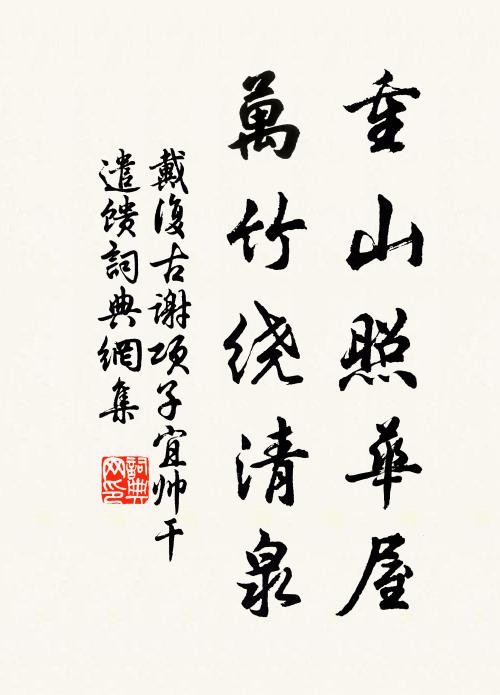 重山照華屋
萬竹绕清泉
戴復古谢项子宜帅干
遣馈詞典網集
詞典
网印